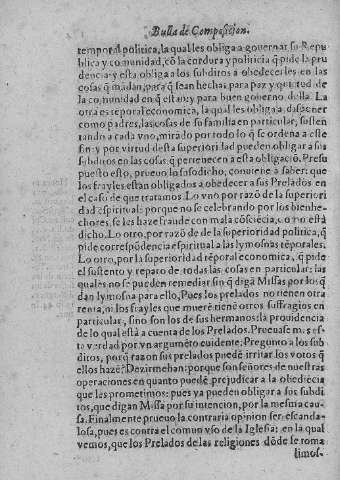 Bulla de Composicion.
temporal politica, la qual les obliga a gouernar su Repu
blica y comunidad, cō la cordura y policia q̄ pide la pru
dencia: y esta obliga a los subditos a obedecerles en las
cosas q̄ mādan, para q̄ sean hechas, para paz y quietud de
la comunidad en q̄ estan: y para buen gouierno della. La
otra es tēporal economica, la qual les obliga a disponer
como padres, las cosas de su familia en particular, susten
tando a cada vno, mirādo por todo lo q̄ se ordena a este
fin: y por virtud desta superioridad pueden obligar a sus
subditos en las cosas q̄ pertenecen a esta obligaciō. Presu
puesto esto, prueuo lo susodicho, conuiene a saber: que
los frayles estan obligados a obedecer a sus Prelados en
el caso de que tratamos. Lo vno por razō de la superiori
dad espiritual: porque no se celebrando por los bienhe-
chores, se les haze fraude con mala cōsciēcia, como está
dicho. Lo otro, por razō de de la superioridad politica, q̄
pide correspōdencia espiritual a las lymosnas tēporales.
Lo otro, por la superioridad tēporal economica, q̄ pide
el sustento y reparo de todas las cosas en particular: las
quales no se pueden remediar sin q̄ digā Missas por los q̄
dan lymosna para ello, Pues los prelados no tienen otra
renta, ni los frayles que muerē tienē otros suffragios en
particular, sino son los de sus hermanos: la prouidencia
de lo qual està a cuenta de los Prelados. Prueuase mas es-
ta verdad por vn argumēto euidente; Pregunto a los sub
ditos, porq̄ razon sus prelados puedē irritar los votos q̄
ellos hazē? Dezirmehan: porque son señores de nuestras
operaciones en quanto puedē prejudicar a la obediēcia
que les prometimos: pues ya pueden obligar a sus subdi
tos, que digan Missa por su intencion, por la mesma cau-
sa. Finalmente prueuo la contraria opinion ser escanda-
losa, pues es contra el comun vso de la Iglesia: en la qual
vemos, que los Prelados de las religiones dōde se toma
limos-